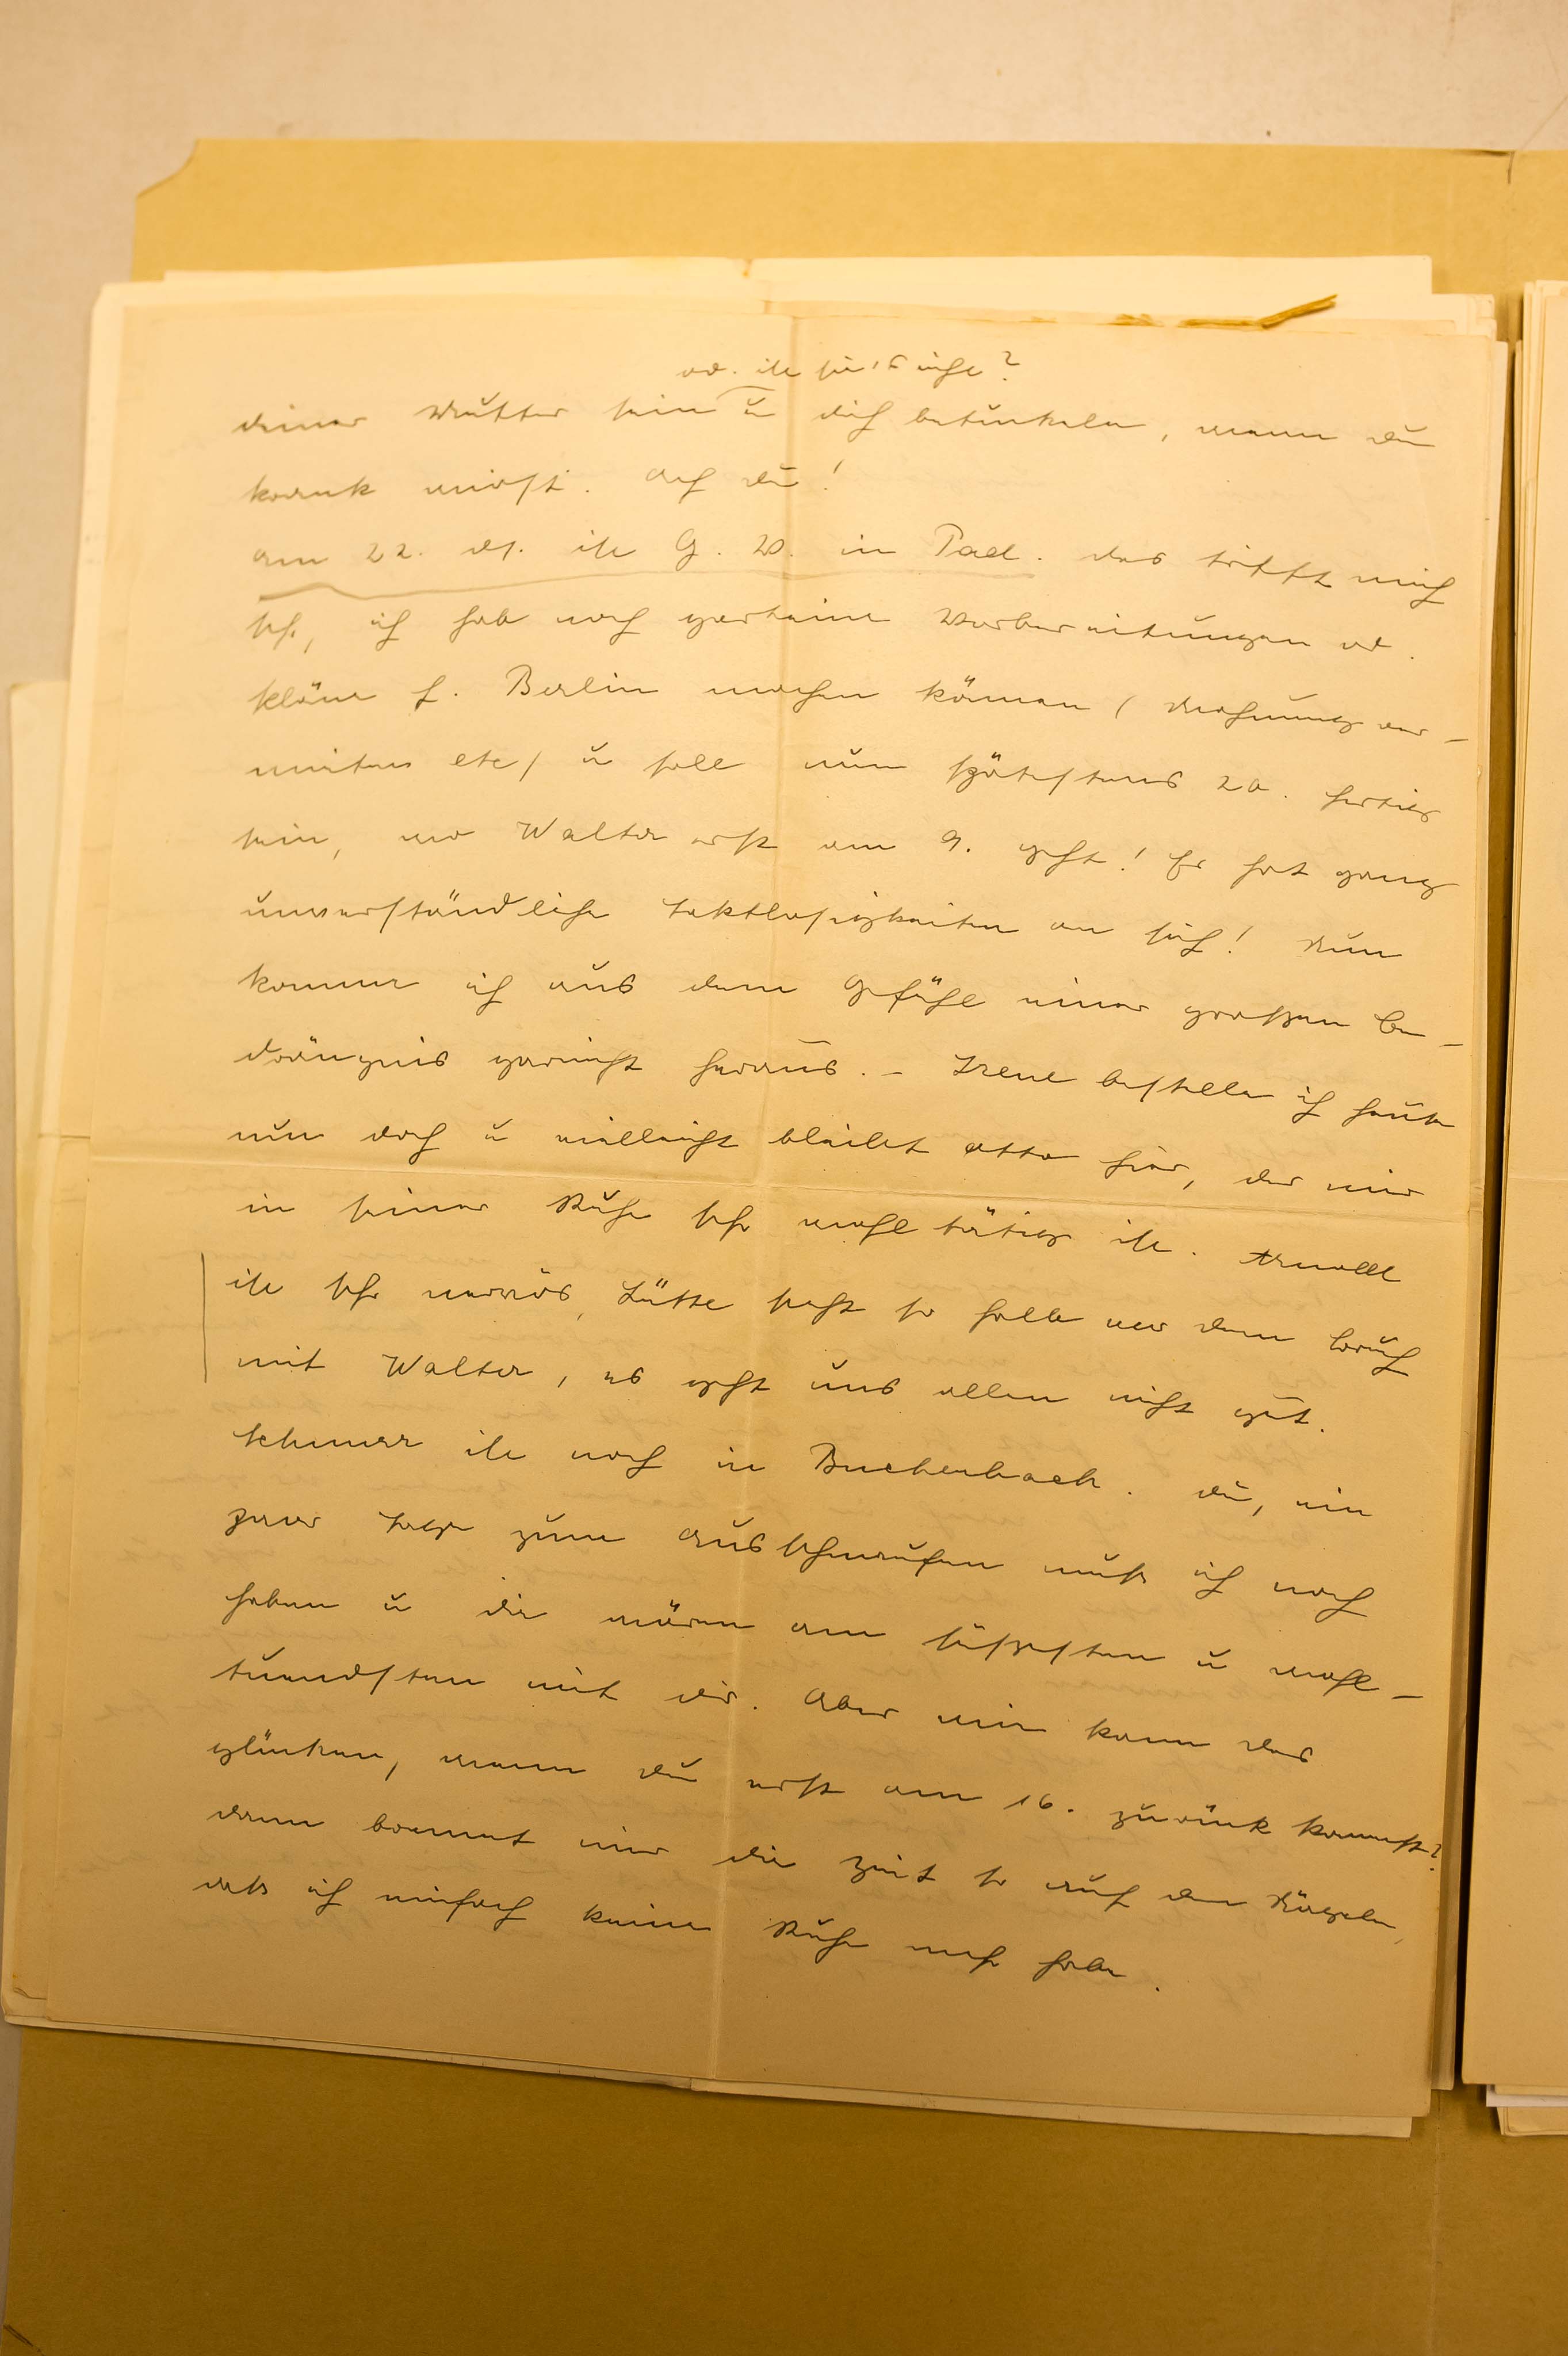 od. ist sie's nicht?
deiner Mutter sein u dich betunteln, wenn du
krank wirst. Ach du!
am 22. ds. ist G. W. in Pad. das trifft mich
sehr, ich hab noch gar keine Vorbereitungen od.
Pläne f. Berlin machen können (Wohnung ver-
mieten etc) u soll nun spätestens 20. fertig
sein, wo Walter erst am 9. geht! Er hat ganz
unverständliche Taktlosigkeiten an sich! Nun
komme ich aus dem Gefühl einer großen Be-
drängnis gar nicht heraus. – Irene bestelle ich heute
nun doch u vielleicht bleibt Otto hier, der mir
in seiner Ruhe sehr wohltätig ist. Arnold
ist sehr nervös, Lütte steht so halb vor dem Bruch
mit Walter, es geht uns allen nicht gut.
ist noch in Buchenbach. du, ein
paar Tage zum Ausschnaufen muß ich noch
haben u die wären am süßesten u wohl-
tuendsten mit dir. Aber wie kann das
glücken, wenn du erst am 16. zurück kommst?
dann brennt mir die Zeit so auf den Nägeln,
daß ich einfach keine Ruhe mehr habe.